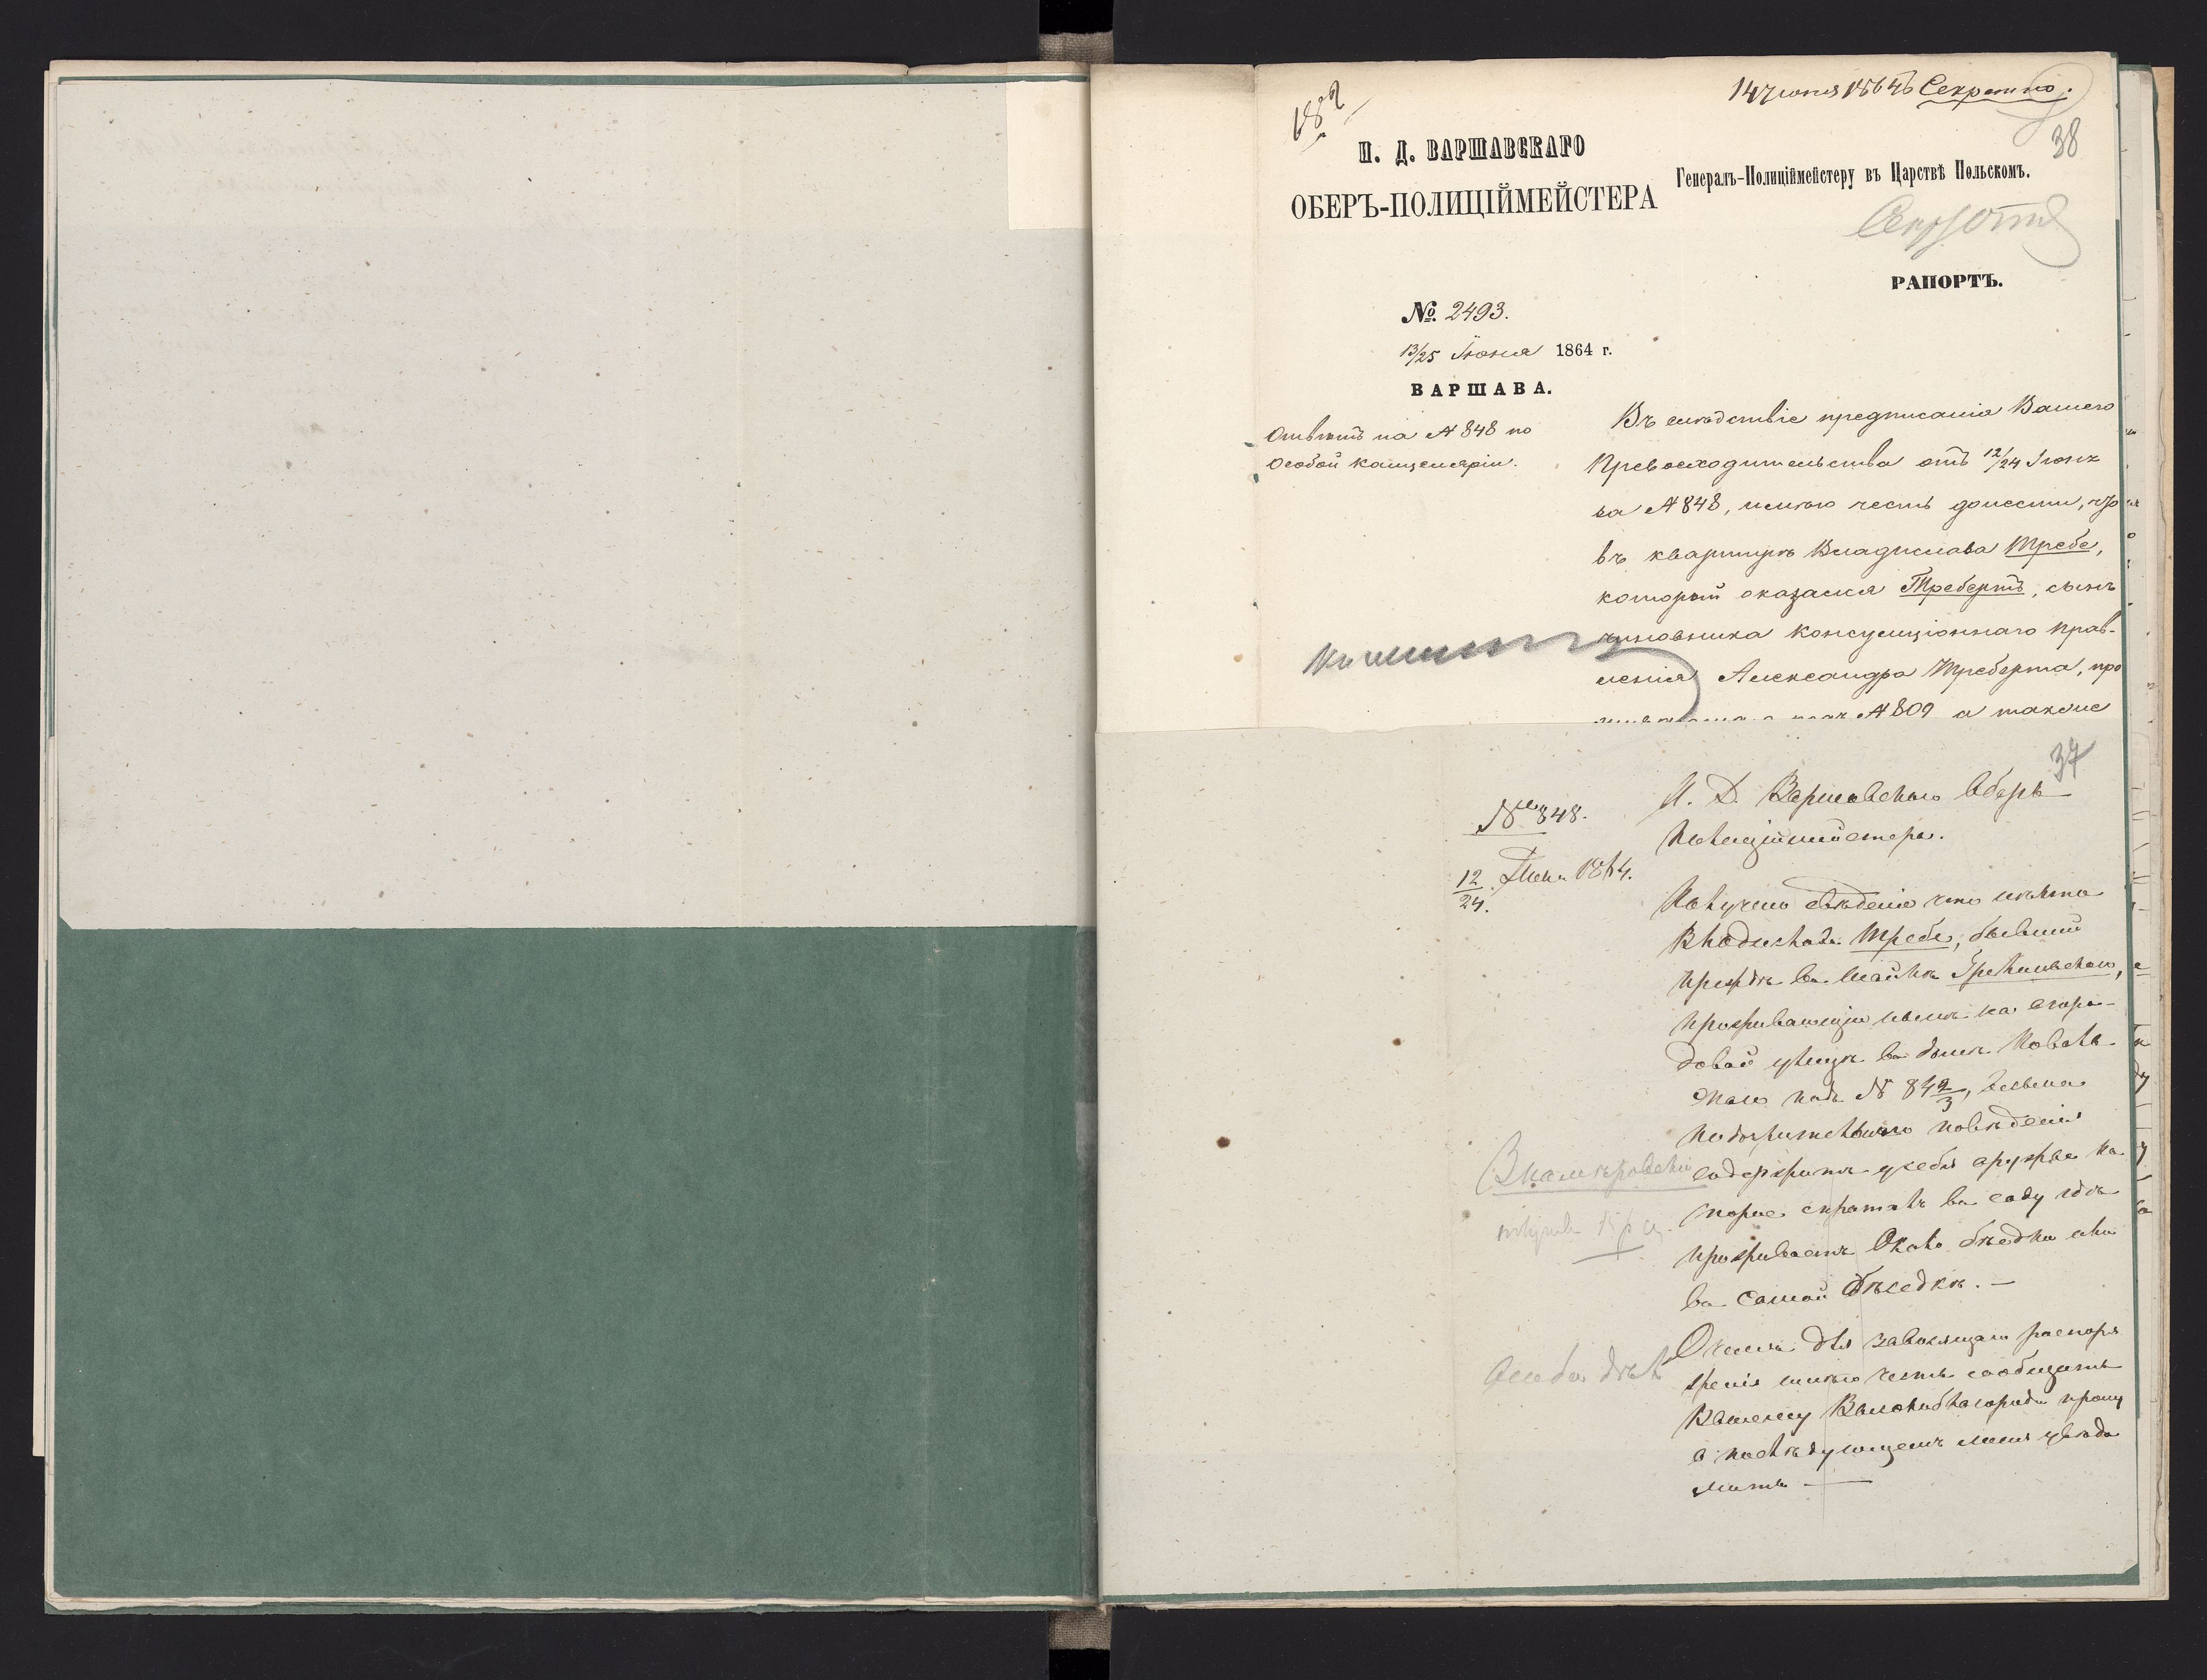 14 Іюня 1864 г. Секретно.
38
И. Д. ВАРШАВСКАГО
ОБЕРЪ-ПОЛИЦІЙМЕЙСТЕРА
Генералъ-Полиціймейстеру въ Царствѣ Польскомъ.
РАПОРТЪ.
№. 2493.
13/25 Іюня 1864 г.
ВАРШАВА.
Отвѣтъ на № 848 по
Особой Канцеляріи.
Въ слѣдствіе предписанія Вашего
Превосходительства отъ 12/24 Іюня
за № 848, имѣю честь донести, что
въ квартирѣ Владислава Требе,
который оказался Требертъ, сынъ
чиновника Консумціоннаго Прав-
ленія Александра Треберта, про
№ 809 а также
37
№ 848.
12/24. Іюня 1864.
И. Д. Варшавскаго Оберъ
Полиціймейстера.
Получено свѣденіе что нѣкто
Владиславъ Требе, бывшій
прежде въ шайкѣ
проживающій нынѣ на Огоро-
довой улицѣ въ домѣ Коваль-
скаго подъ № 842/3, весьма
подозрительнаго поведенія
содержитъ у себя оружіе ко-
торое спряталъ въ саду гдѣ
проживаетъ Около бесѣдки или
въ самой бесѣдкѣ. —
О чемъ для зависящаго распоря
женія имѣю честь сообщить
Вашему Высокоблагородію прошу
о послѣдующемъ меня увѣдо
мить —